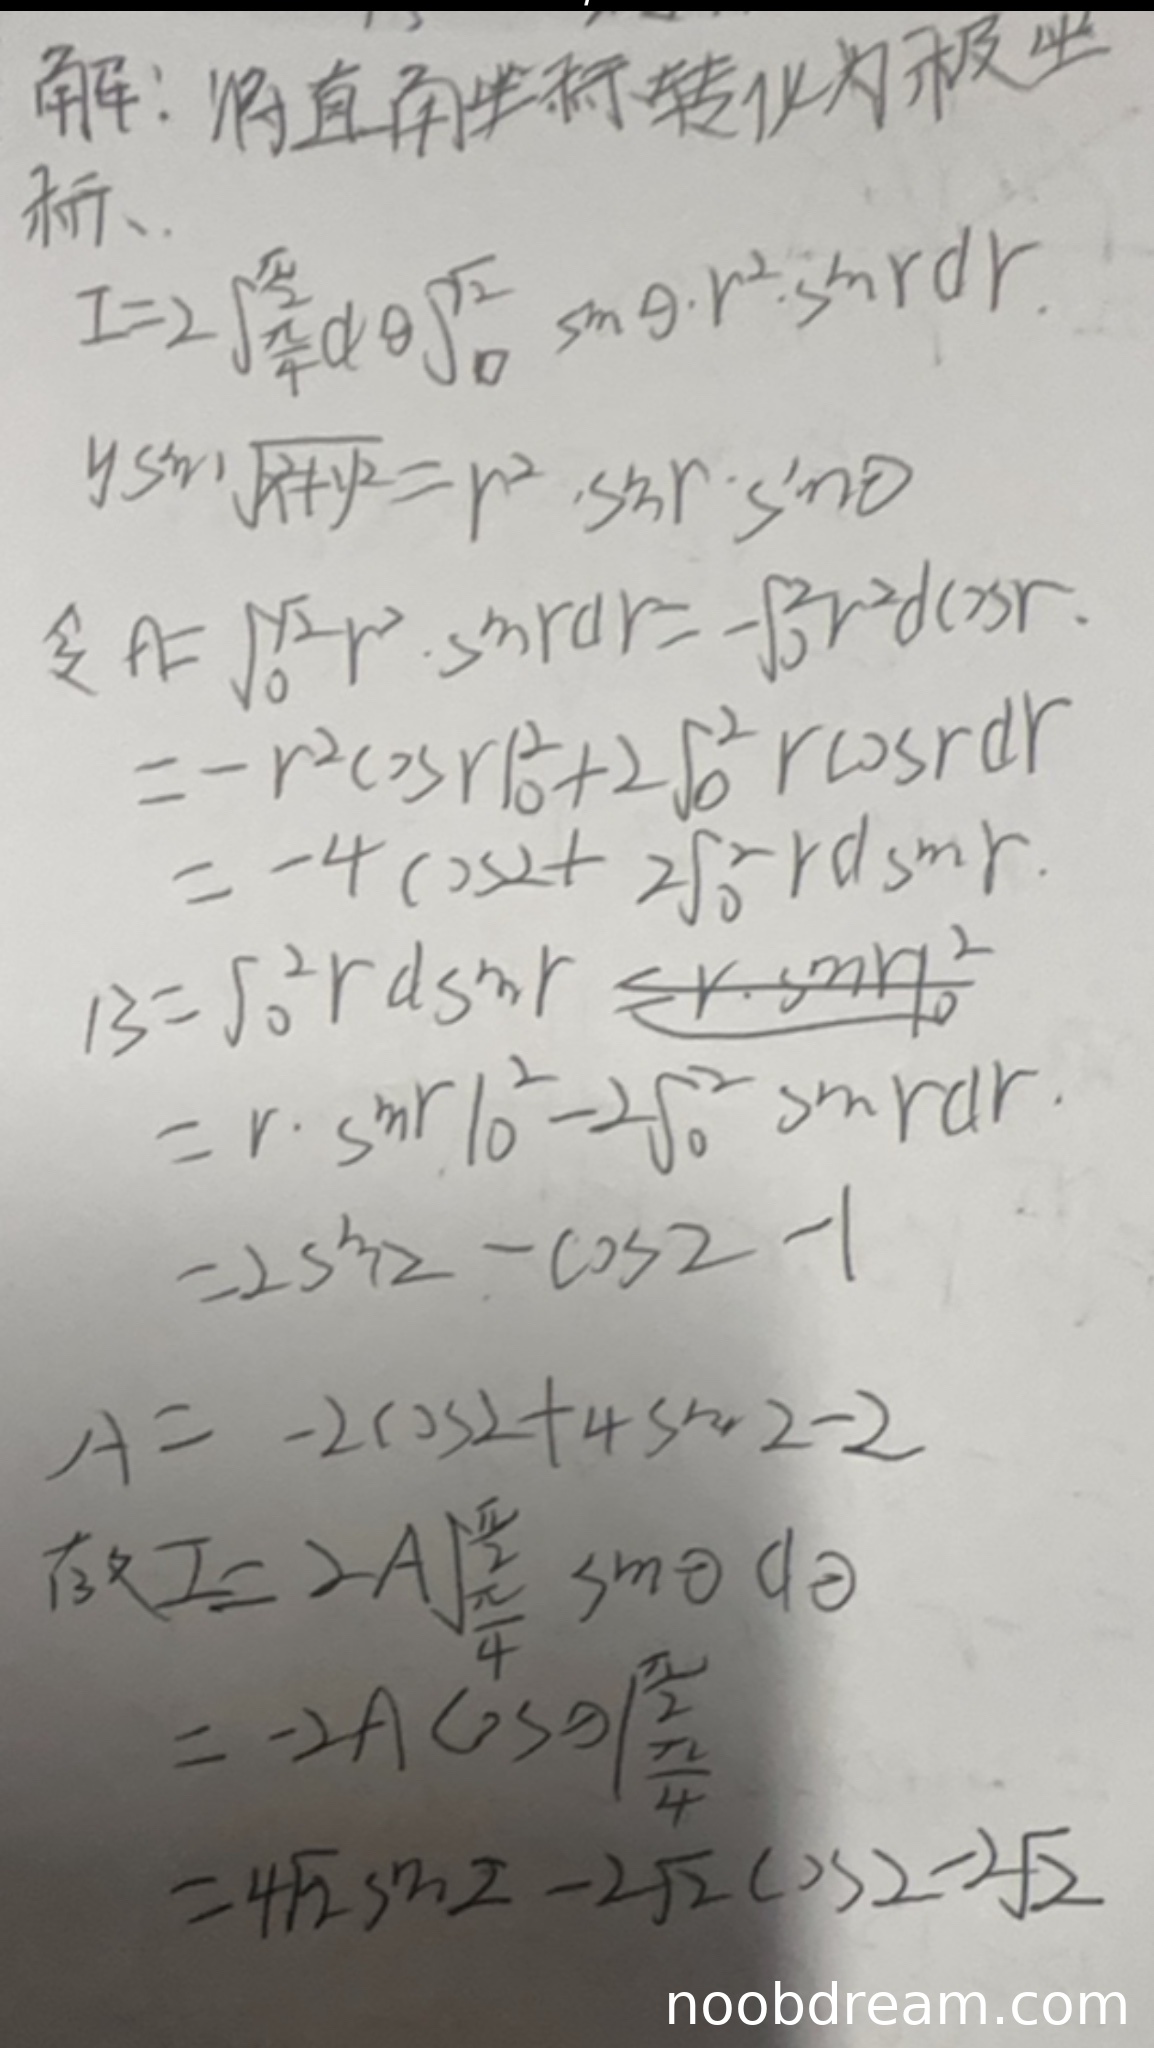 解：将直角坐标转化为极坐
标、.
I=2∫_{π/4}^{π/2}dθ∫_0^{√2} sinθ·r²·sinrdr.
ysin√(x²+y²)=r²·sinr·sinθ
令A=∫_0^{√2}r²·sinrdr=-∫_0^2r²dcosr.
=-r²cosr|_0^2+2∫_0^2rcosrdr
=-4cos2+2∫_0^2rdsinr.
B=∫_0^2rdsinr =r·sinr|_0^2
=r·sinr|_0^2-2∫_0^2sinrdr.
=2sin2-cos2-1
A=-2cos2+4sin2-2
故I=2A∫_{π/4}^{π/2}sinθdθ
=-2Acosθ|_{π/4}^{π/2}
=4√2sin2-2√2cos2-2√2
noobdream.com